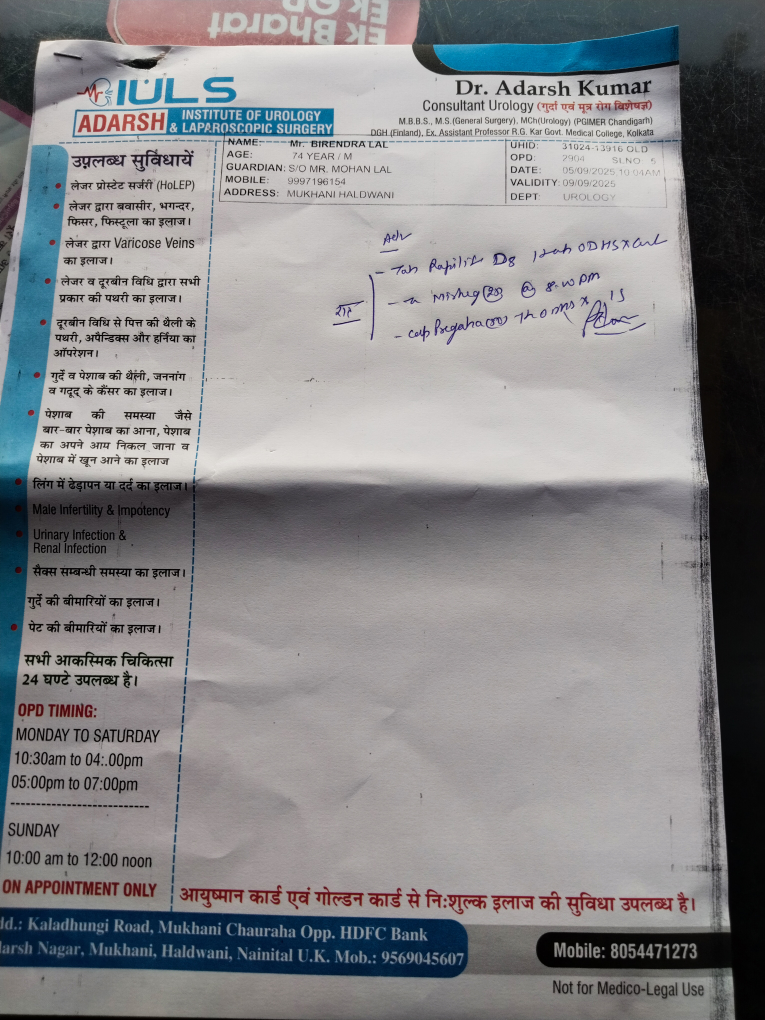 Ek Bharat
IULS
ADARSH INSTITUTE OF UROLOGY
& LAPAROSCOPIC SURGERY
Dr. Adarsh Kumar
Consultant Urology (गुर्दा एवं मूत्र रोग विशेषज्ञ)
M.B.B.S., M.S.(General Surgery), MCh(Urology) (PGIMER Chandigarh)
DGH (Finland), Ex. Assistant Professor R.G. Kar Govt. Medical College, Kolkata
NAME: Mr. BIRENDRA LAL
AGE: 74 YEAR / M
GUARDIAN: S/O MR. MOHAN LAL
MOBILE: 9997196154
ADDRESS: MUKHANI HALDWANI
UHID: 31024-13916 OLD
OPD: 2904 SLNO 5
DATE: 05/09/2025, 10:04AM
VALIDITY: 09/09/2025
DEPT: UROLOGY
उपलब्ध सुविधायें
• लेजर प्रोस्टेट सर्जरी (HoLEP)
• लेजर द्वारा बवासीर, भगन्दर,
फिसर, फिस्टूला का इलाज।
• लेजर द्वारा Varicose Veins
का इलाज।
• लेजर व दूरबीन विधि द्वारा सभी
प्रकार की पथरी का इलाज।
• दूरबीन विधि से पित्त की थैली के
पथरी, अपैन्डिक्स और हर्निया का
ऑपरेशन।
• गुर्दे व पेशाब की थैली, जननांग
व गदूद् के कैंसर का इलाज।
• पेशाब की समस्या जैसे
बार-बार पेशाब का आना, पेशाब
का अपने आप निकल जाना व
पेशाब में खून आने का इलाज
• लिंग में ढेड़ापन या दर्द का इलाज।
• Male Infertility & Impotency
• Urinary Infection &
Renal Infection
• सैक्स सम्बन्धी समस्या का इलाज।
गुर्दे की बीमारियों का इलाज।
• पेट की बीमारियों का इलाज।
सभी आकस्मिक चिकित्सा
24 घण्टे उपलब्ध है।
OPD TIMING:
MONDAY TO SATURDAY
10:30am to 04:.00pm
05:00pm to 07:00pm
SUNDAY
10:00 am to 12:00 noon
ON APPOINTMENT ONLY
Adv
- Tab D8
-
- cap
आयुष्मान कार्ड एवं गोल्डन कार्ड से निःशुल्क इलाज की सुविधा उपलब्ध है।
dd.: Kaladhungi Road, Mukhani Chauraha Opp. HDFC Bank
arsh Nagar, Mukhani, Haldwani, Nainital U.K. Mob.: 9569045607
Mobile: 8054471273
Not for Medico-Legal Use